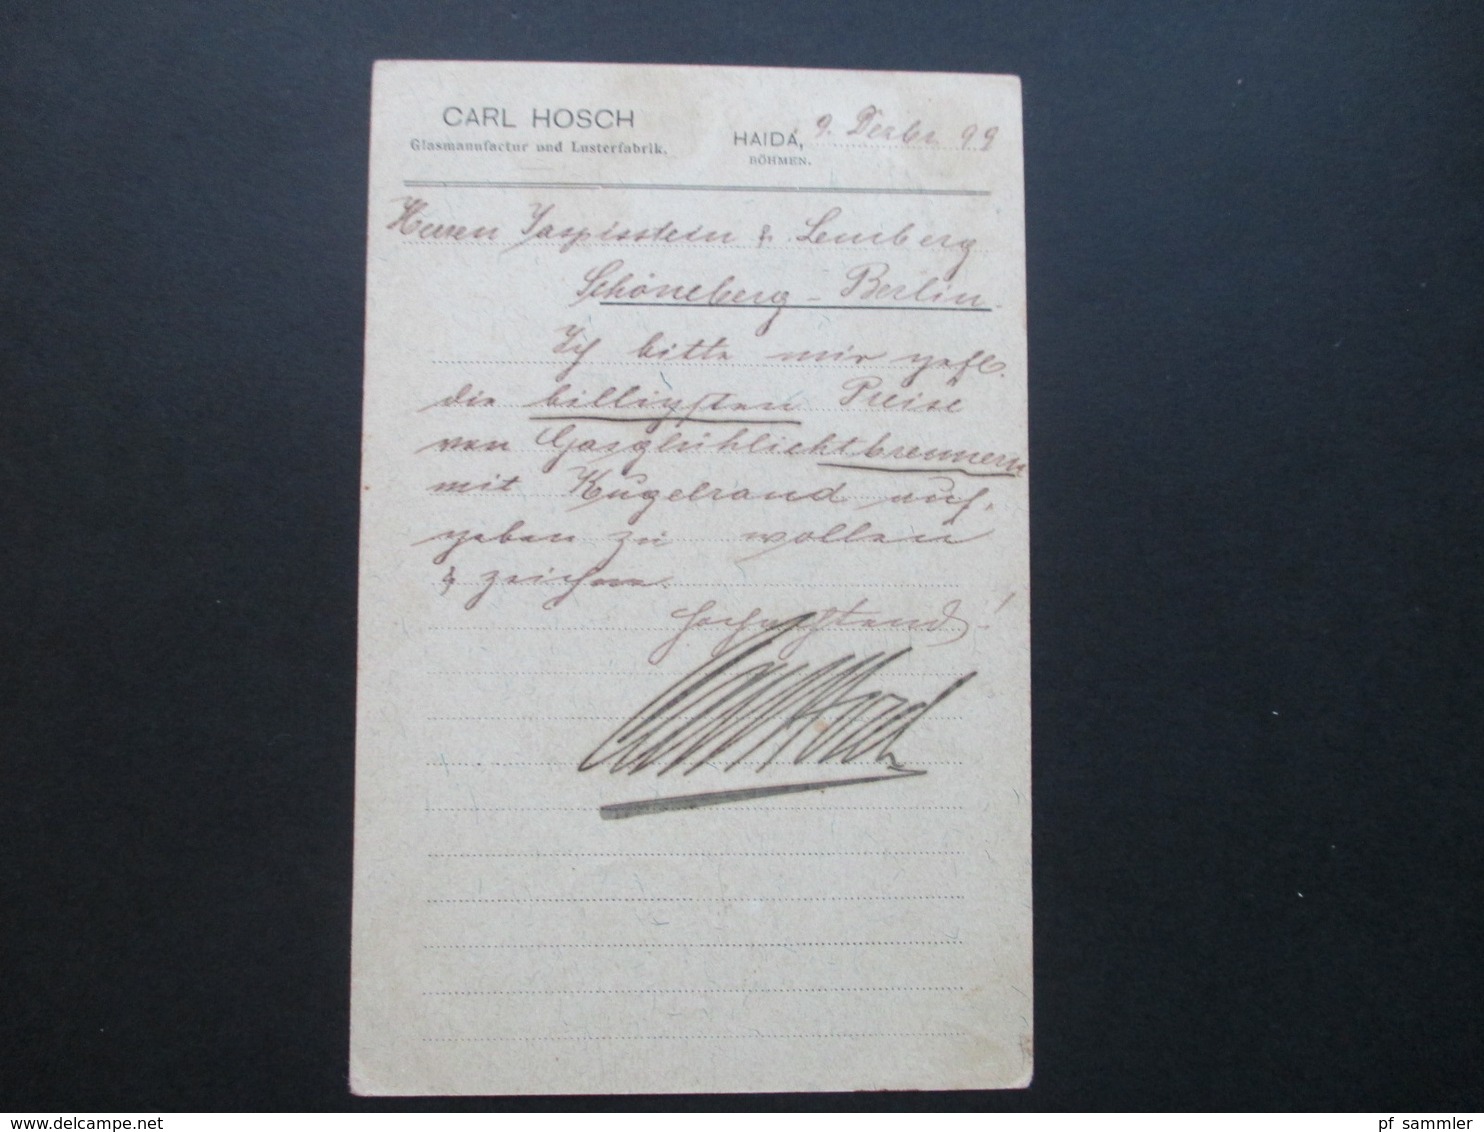 CARL HOSCH
Glasmanufactur und Lusterfabrik.
HAIDA, 9. Dezbr. 99
BÖHMEN.
Herren Jaspisstein & Lemberg
Schöneberg - Berlin
Ich bitte mir gefl.
die billigsten Preise
von Gasglühlichtbrennern
mit Kugelrand auf-
geben zu wollen
& zeichne
hochachtend!
Carl Hosch
pf_sammler